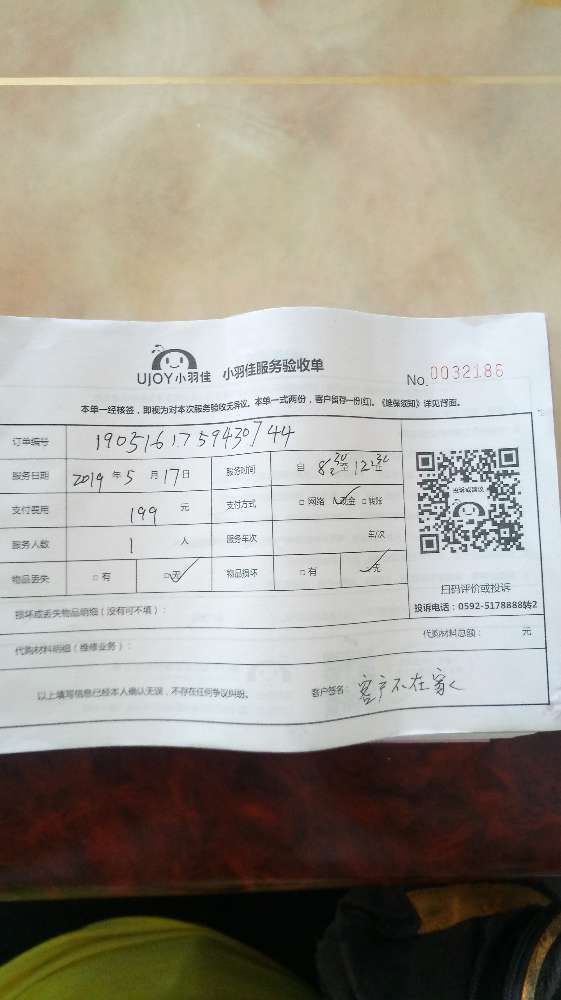 UJOY小羽佳 小羽佳服务验收单 No. 0032186
本单一经核签，即视为对本次服务验收无异议。本单一式两份，客户留存一份(红)。《维保须知》详见背面。
订单编号 1905161759430744
服务日期 2019年5月17日 服务时间 自 8:30至12:30
支付费用 199 元 支付方式 □网络 ☑现金 □转账
服务人数 1 人 服务车次 车/次
物品丢失 □有 ☑无 物品损坏 □有 ☑无
投诉或建议
扫码评价或投诉
投诉电话：0592-5178888转2
损坏或丢失物品明细（没有可不填）：
代购材料明细（维修业务）： 代购材料总额： 元
以上填写信息已经本人确认无误，不存在任何争议纠纷。 客户签名：客户不在家